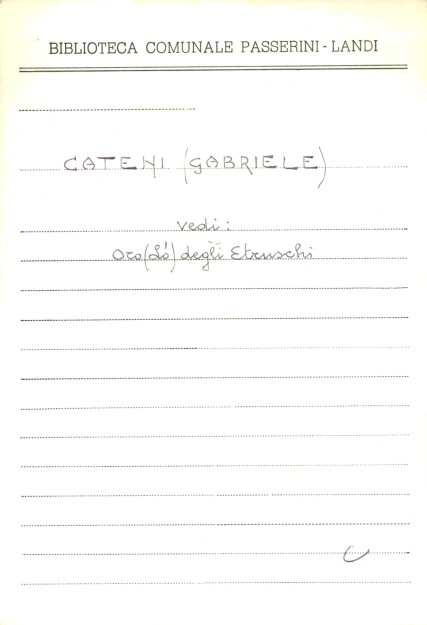 BIBLIOTECA COMUNALE PASSERINI-LANDI
CATENI (GABRIELE)
vedi:
Oro (L') degli Etruschi
C